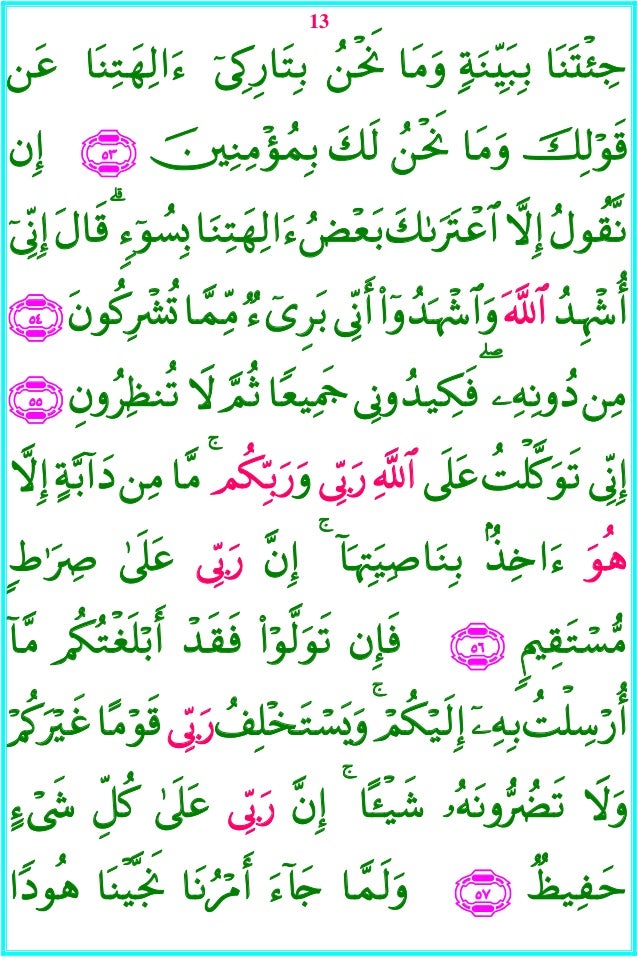 13
جِئْتَنَا بِبَيِّنَةٍ وَمَا نَحْنُ بِتَارِكِىٓ ءَالِهَتِنَا عَن
قَوْلِكَ وَمَا نَحْنُ لَكَ بِمُؤْمِنِينَ ٥٣ إِن
نَّقُولُ إِلَّا ٱعْتَرَىٰكَ بَعْضُ ءَالِهَتِنَا بِسُوٓءٍ ۗ قَالَ إِنِّىٓ
أُشْهِدُ ٱللَّهَ وَٱشْهَدُوٓا۟ أَنِّى بَرِىٓءٌ مِّمَّا تُشْرِكُونَ ٥٤
مِن دُونِهِۦ ۖ فَكِيدُونِى جَمِيعًا ثُمَّ لَا تُنظِرُونِ ٥٥
إِنِّى تَوَكَّلْتُ عَلَى ٱللَّهِ رَبِّى وَرَبِّكُم ۚ مَّا مِن دَآبَّةٍ إِلَّا
هُوَ ءَاخِذٌۢ بِنَاصِيَتِهَآ ۚ إِنَّ رَبِّى عَلَىٰ صِرَٰطٍ
مُّسْتَقِيمٍ ٥٦ فَإِن تَوَلَّوْا۟ فَقَدْ أَبْلَغْتُكُم مَّآ
أُرْسِلْتُ بِهِۦٓ إِلَيْكُمْ ۚ وَيَسْتَخْلِفُ رَبِّى قَوْمًا غَيْرَكُمْ
وَلَا تَضُرُّونَهُۥ شَيْـًٔا ۚ إِنَّ رَبِّى عَلَىٰ كُلِّ شَىْءٍ
حَفِيظٌ ٥٧ وَلَمَّا جَآءَ أَمْرُنَا نَجَّيْنَا هُودًا